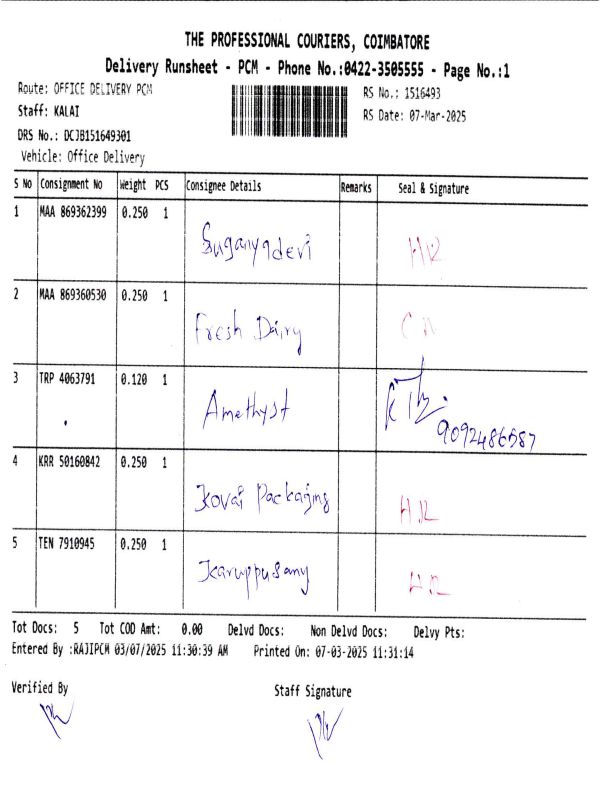 THE PROFESSIONAL COURIERS, COIMBATORE
Delivery Runsheet - PCM - Phone No.:0422-3505555 - Page No.:1
Route: OFFICE DELIVERY PCM
RS No.: 1516493
Staff: KALAI
RS Date: 07-Mar-2025
DRS No.: DCJB151649301
Vehicle: Office Delivery
S No Consignment No Weight PCS Consignee Details Remarks Seal & Signature
1 MAA 869362399 0.250 1
Suganyadevi H.R
2 MAA 869360530 0.250 1
Fresh Dairy
3 TRP 4063791 0.120 1
Amethyst
9092486587
4 KRR 50160842 0.250 1
Kovai Packaging H.R
5 TEN 7910945 0.250 1
Karuppusamy H.R
Tot Docs: 5 Tot COD Amt: 0.00 Delvd Docs: Non Delvd Docs: Delvy Pts:
Entered By :RAJIPCM 03/07/2025 11:30:39 AM Printed On: 07-03-2025 11:31:14
Verified By Staff Signature